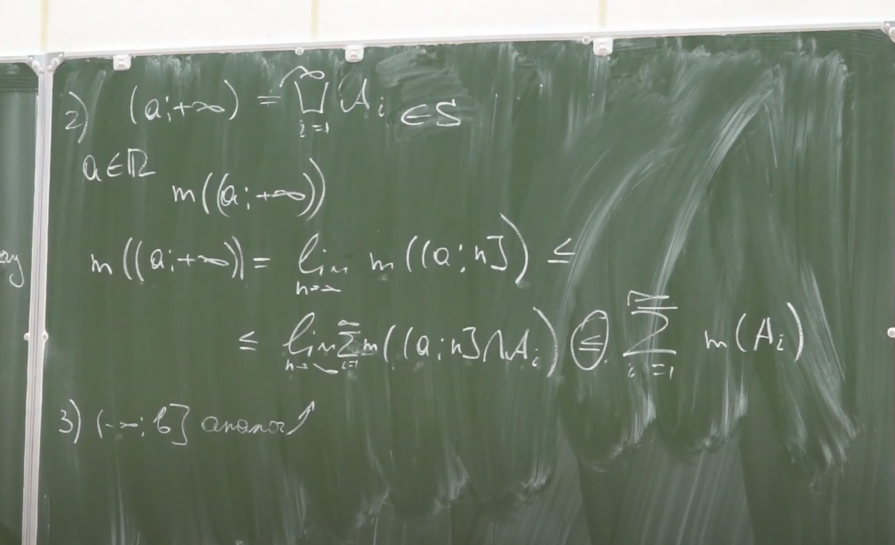 2) (a;+∞) = ⨆_{i=1}^{∞} A_i ∈ S
a ∈ ℝ
m((a;+∞))
m((a;+∞)) = lim_{n→∞} m((a;n]) ≤
≤ lim_{n→∞} ∑_{i=1}^{∞} m((a;n]∩A_i) ≤ ∑_{i=1}^{∞} m(A_i)
3) (-∞; b]